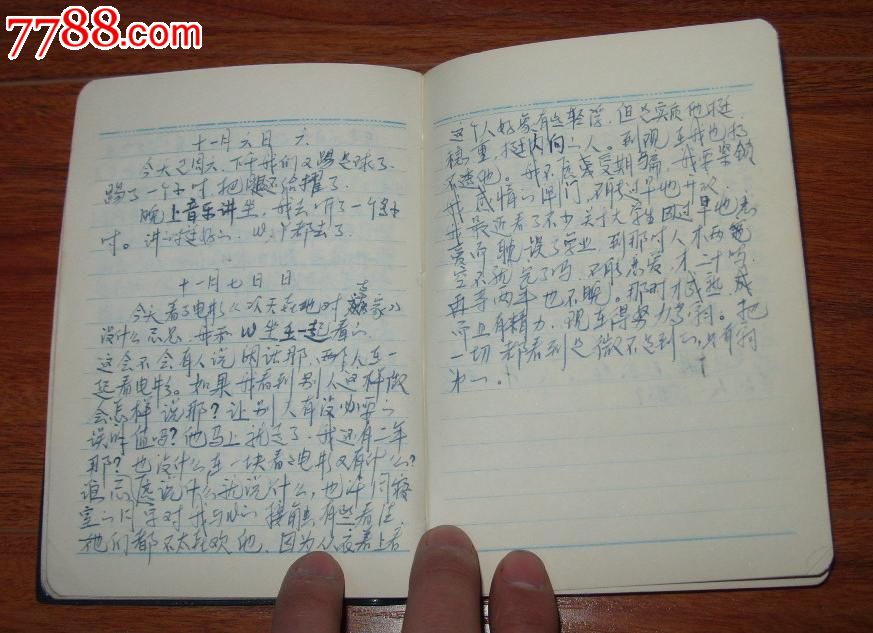 7788.com
十一月六日 六
今天是周六、下午我们又踢足球了、
踢了一个小时、把腿还给撞了.
晚上音乐讲坐,我去听了一个多小
时。讲的挺好的、W、Y都去了.
十一月七日 日
今天看了电影
没什么意思,我和W坐在一起看的
这会不会有人说闲话那,两个人在一
起看电影。如果我看到别人这样做
会怎样说那?让别人有没必要的
误时值吗?他马上就走了.我还有二年
那?也没什么在一块看电影又有什么?
谁愿意说什么就说什么,也许同寝
室的同学对我与W的接触有些看法.
他们都不太喜欢他,因为从表面上看
这个人好象有些轻浮,但是实质他挺
稳重,挺内向的人。到现在我也摸
不透他。我不愿意受欺骗,我要紧锁
我感情的闸门、不能过早地开放.
我最近看了不少关于大学生因过早地恋
爱而耽误了学业,到那时人才两
空不就完了吗、不能恋爱,才二十吗.
再等两年也不晚。那时才成熟或
而且有精力、现在得努力学习。把
一切都看到是微不足到的,只有学习
第一。